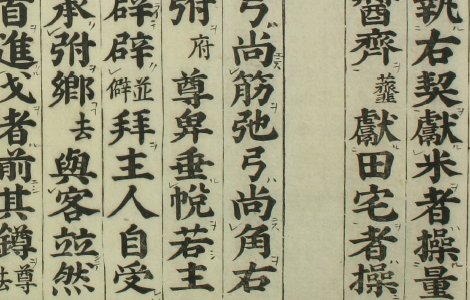 執右契獻米者操量
醬齊虀獻田宅者操
弓尚筋弛弓尚角右
弣府尊卑垂帨若主
辟辟並僻拜主人自受
承弣鄉去與客竝然
首進戈者前其鐏尊去